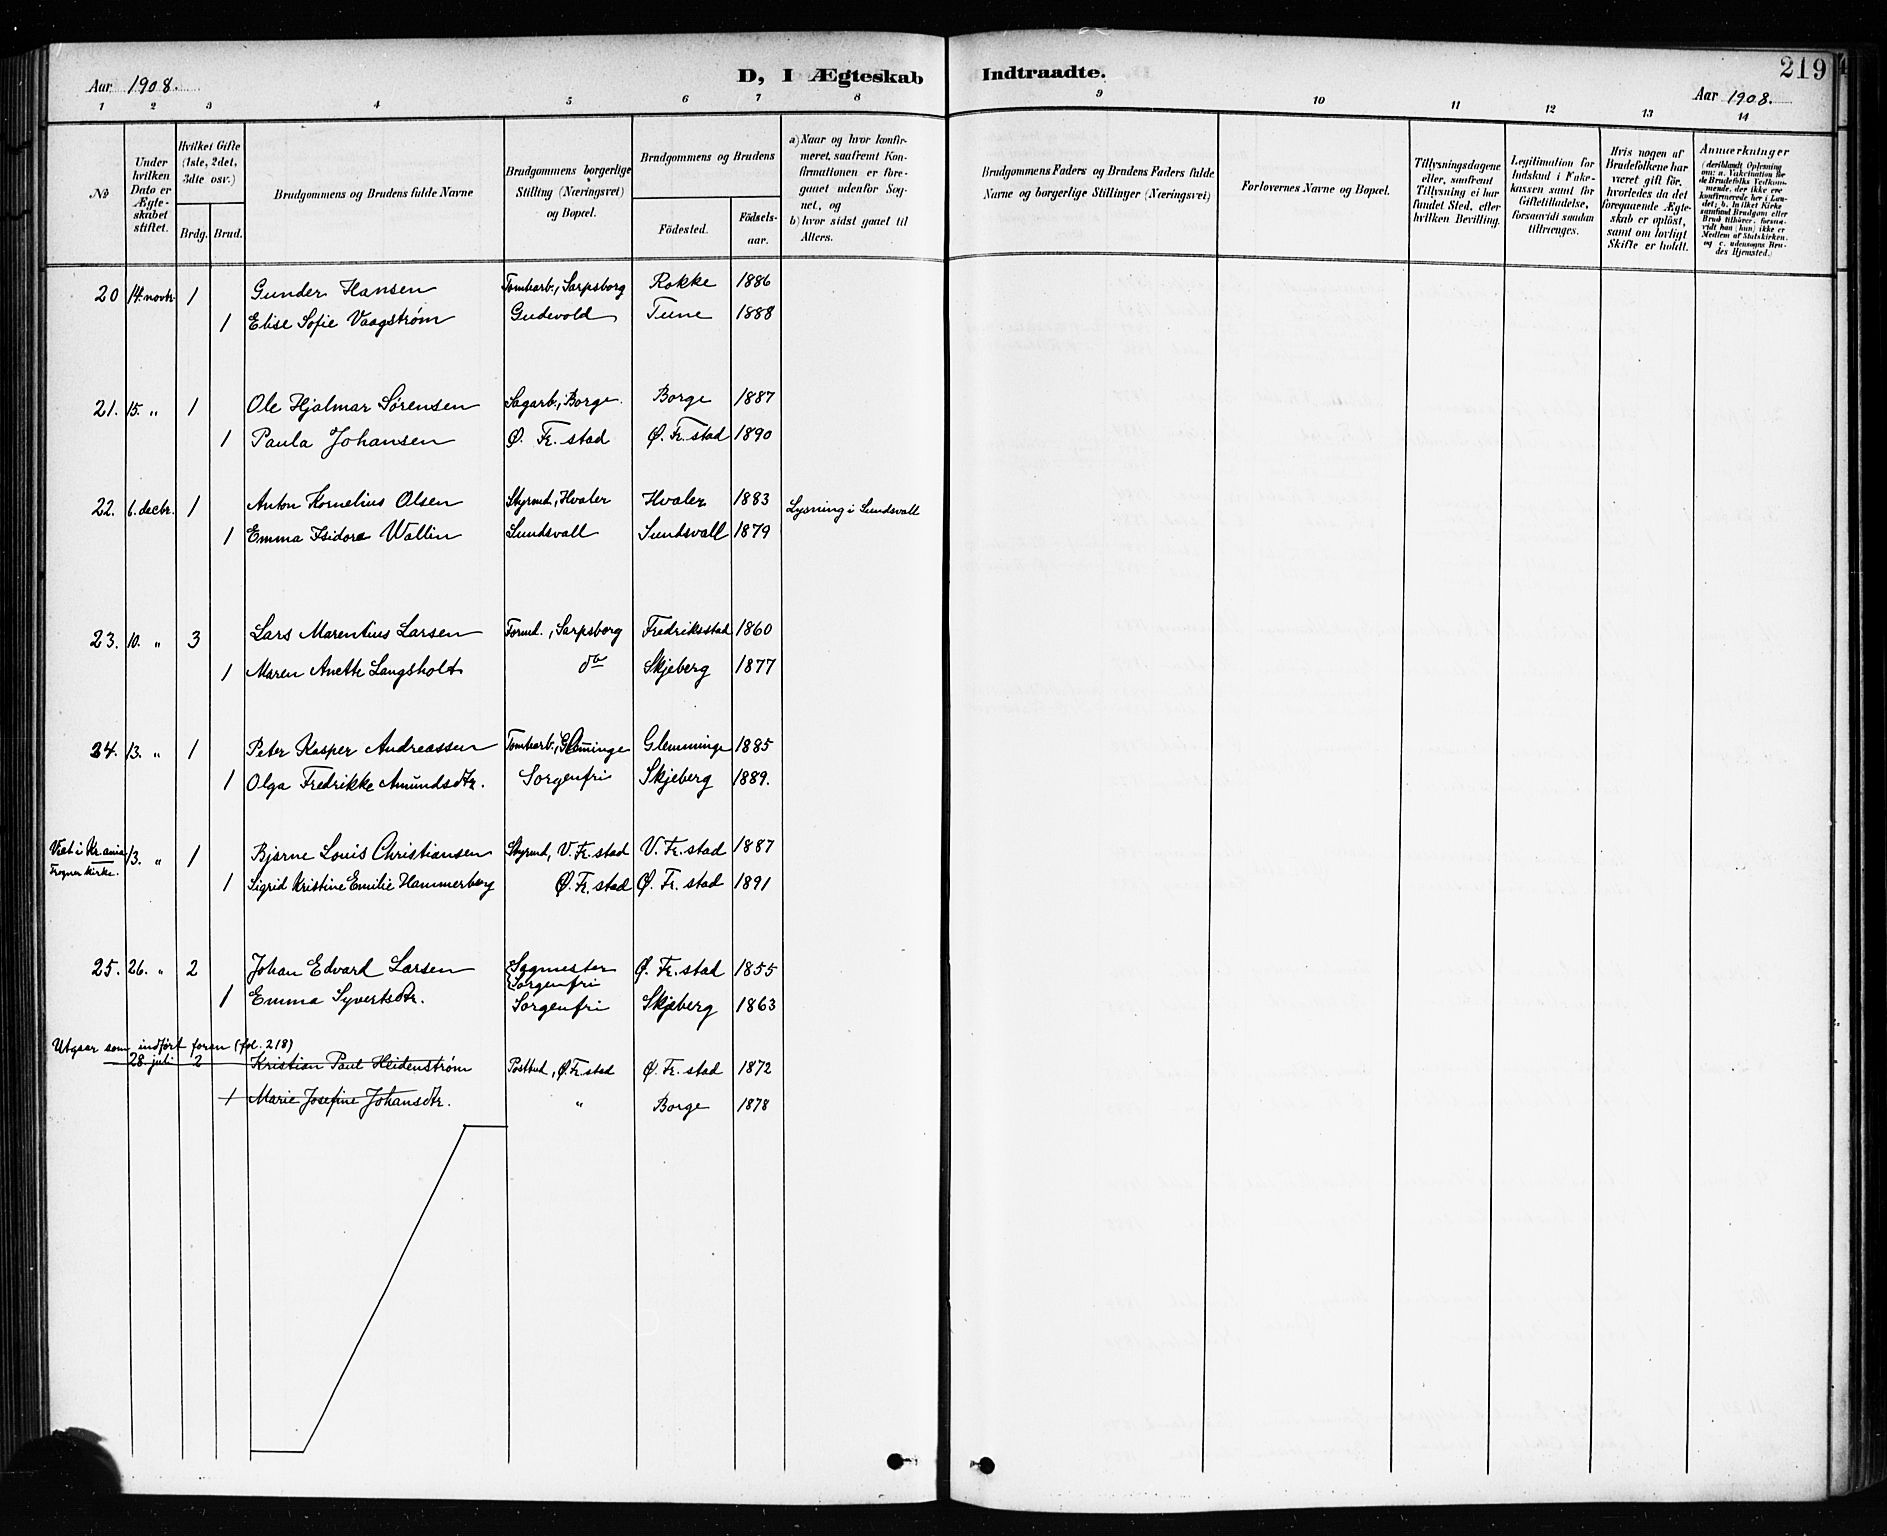 219
Aar 1908.
D, I Ægteskab Indtraadte.
Aar 1908.
1 2 3 4 5 6 7 8 9 10 11 12 13 14
No
Under hvilken Dato er Ægteskabet stiftet.
Hvilket Gifte (1ste, 2det, 3dte osv.)
Brdg. Brud.
Brudgommens og Brudens fulde Navne
Brudgommens borgerlige Stilling (Næringsvei) og Bopæl.
Brudgommens og Brudens
Födested. Födsels-aar.
a) Naar og hvor konfir-
meret, saafremt Kon-
firmationen er fore-
gaaet udenfor Sog-
net, og
b) hvor sidst gaaet til
Alters.
Brudgommens Faders og Brudens Faders fulde
Navne og borgerlige Stillinger (Næringsvei)
Forlovernes Navne og Bopæl.
Tillysningsdagene
eller, saafremt
Tillysning ei har
fundet Sted, efter
hvilken Bevilling.
Legitimation for
Indskud i Enke-
kassen samt for
Giftetilladelse,
forsaavidt saadan
tiltrænges.
Hvis nogen af
Brudefolkene har
været gift før,
hvorledes da det
foregaaende Ægte-
skab er oplöst,
samt om lovligt
Skifte er holdt.
Anmærkninger
(deriblandt Oplysning
om: a. Vakcination for
de Brudefolks Vedkom-
mende, der ikke ere
konfirmerede her i Lan-
det; b. hvilket Kirke
samfund Brudgom eller
Brud tilhører, forsaa-
vidt han (hun) ikke er
Medlem af Statskirken,
og c. udensogns Bru-
des Hjemsted.)
20 14. novbr. 1 Gunder Hansen Tomtearb., Sarpsborg Rokke 1886
1 Elise Sofie Vaagstrøm Gudevold Tune 1888
21. 15. " 1 Ole Hjalmar Sørensen Sagarb., Borge. Borge 1887
1 Paula Johansen Ø. Fr. stad Ø. Fr. stad 1890
22. 6. decbr. 1 Anton Kornelius Olsen Styrmd., Hvaler Hvaler 1883 Lysning i Sundsvall
1 Emma Isidora Wallin Sundsvall Sundsvall 1879
23. 10. " 3 Lars Marentius Larsen Formd., Sarpsborg Fredriksstad 1860
1 Maren Anette Langsholt do Skjeberg 1877
24. 13. " 1 Peter Kasper Andreassen Tomtearb., Glemminge Glemminge 1885
1 Olga Fredrikke Amundsdtr. Sorgenfri Skjeberg 1889.
Viet i Kr.ania
Frogner kirke.
13. " 1 Bjarne Louis Christiansen Styrmd, V. Fr. stad V. Fr. stad 1887
1 Sigrid Kristine Emilie Hammerberg Ø. Fr. stad Ø. Fr. stad 1891
25. 26. " 2 Johan Edvard Larsen Sagmester Ø. Fr. stad 1855
Sorgenfri
1 Emma Syvertsdtr. Sorgenfri Skjeberg 1863
Utgaar som indført foran (fol. 218)
28 juli 2 Kristian Paul Heidenstrøm Postbud, Ø. Fr. stad Ø. Fr. stad 1872
1 Marie Josefine Johansdtr. " Borge 1878